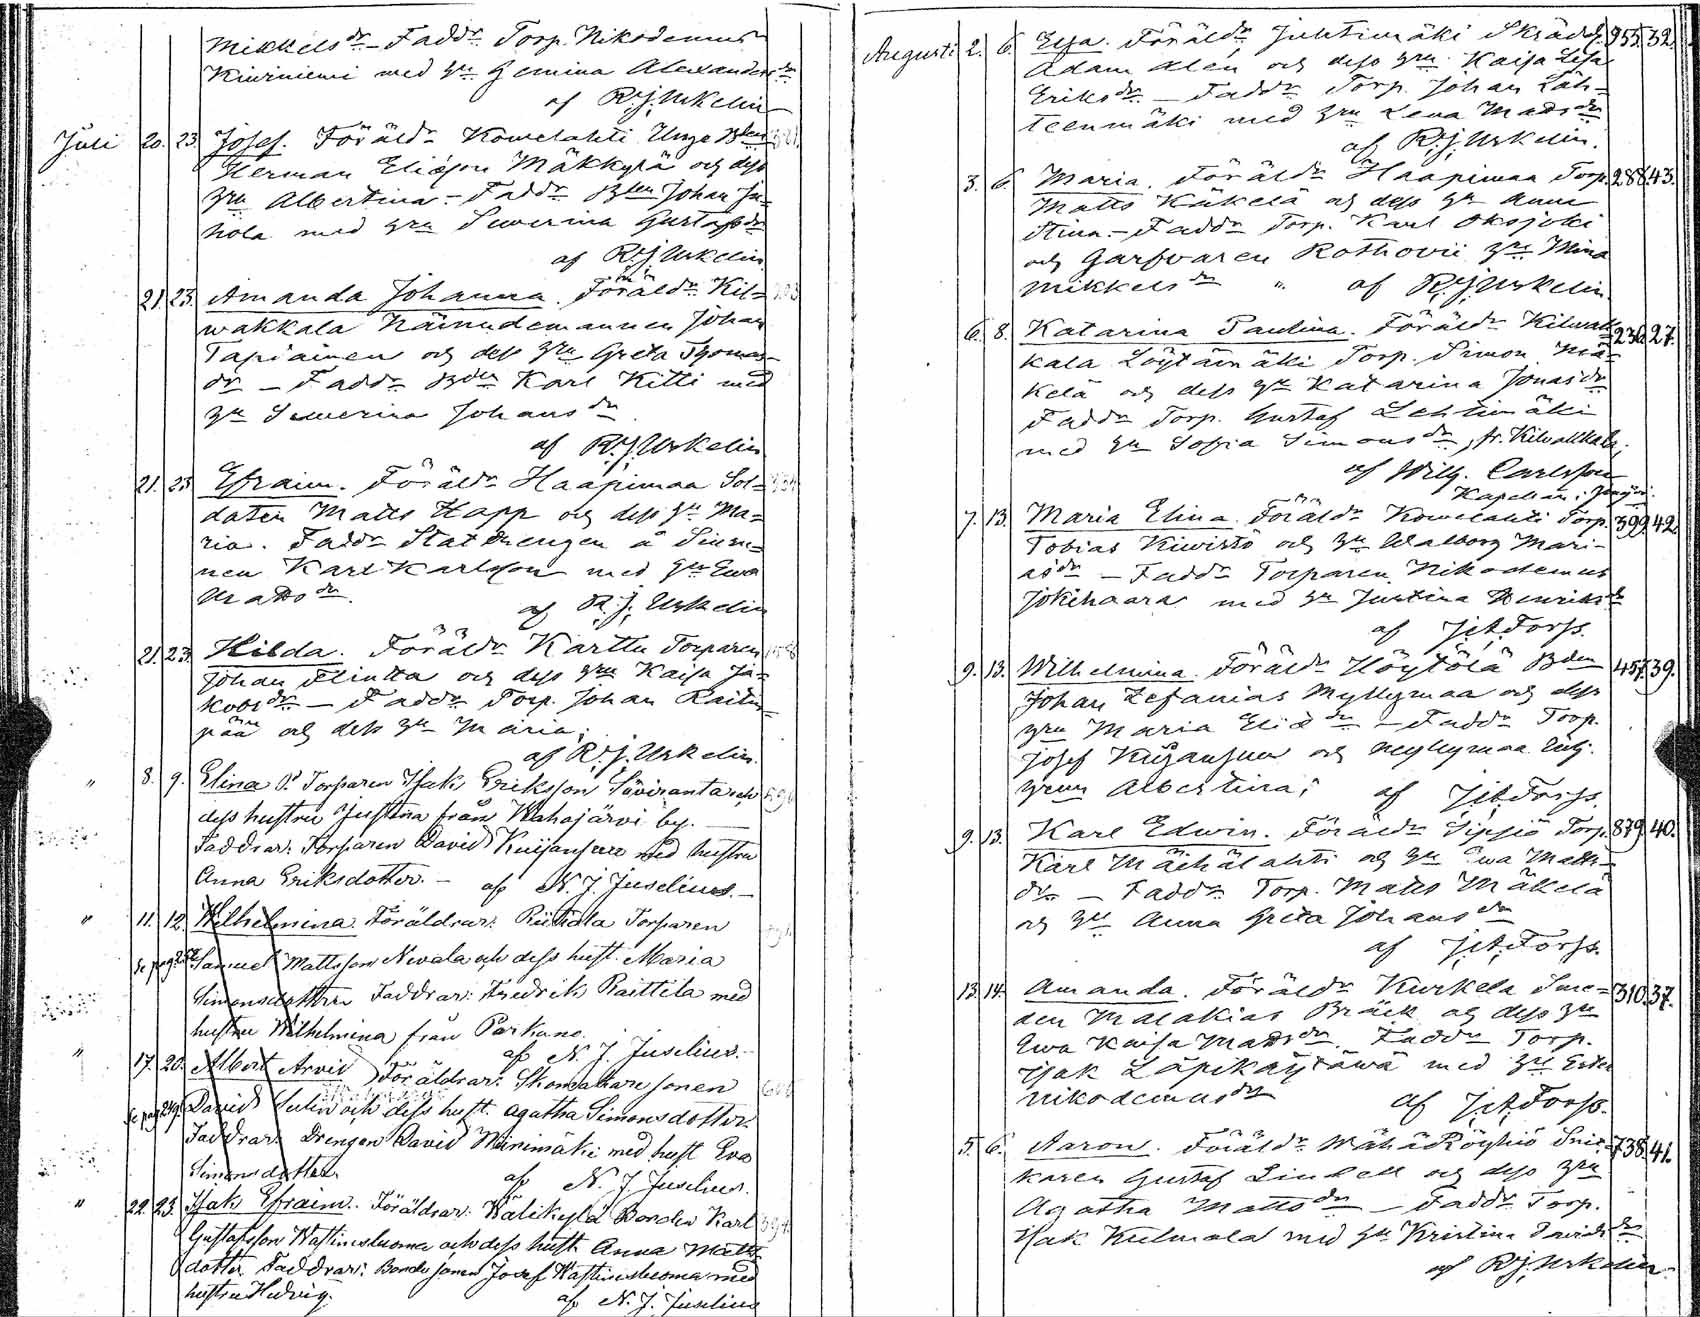 Mikkelsdr – Faddr Torp. Nikodemus
Kiviniemi med hu Gemina Alexandersdr
af R.J. Urkelin
Juli 20. 23. Josef. Föräldr Kowelahti Unge Bden
Herman Eliæson Mäkkylä och dess
hru Albertina. – Faddr Bden Johan Ju-
hola med hru Sewerina Gustafsdr
af R.J. Urkelin
21. 23. Amanda Johanna. Föräldr Kil-
wakkala Nämndemannen Johan
Tapiainen och dess hru Greta Thomas-
dr – Faddr Bden Karl Kitti med
hu Sewerina Johansdr
af R.J. Urkelin
21. 23 Efraim. Föräldr Haapimaa Sol-
daten Matts Happ och dess hu Ma-
ria. Faddr Statdrengen å
nen Karl Karlsson med hu Ewa
Mattsdr.
af R.J. Urkelin
21. 23. Hilda. Föräldr Karttu Torparen
Johan Flintta och dess hru Kaisa Ja-
kobsdr – Faddr Torp. Johan Raitin-
pää och dess hu Maria;
af R.J. Urkelin.
" 8. 9. Elina Fr Torparen Isak Eriksson Saviranta och
dess hustru Justina från Wahojärvi by.
Faddrar: Torparen David Kuijanpää med hustru
Anna Eriksdotter. – af N. J. Juselius. –
" 11. 12. Wilhelmina. Föräldrar: Riitiala Torparen
Se pag. Samuel Mattsson Nevala och dess hust. Maria
Simonsdotter Faddrar: Fredrik Raittila med
hustru Wilhelmina från Parkano.
af N. J. Juselius. –
" 17. 20. Albert Arvid Föräldrar: Skomakare sonen
Se pag. 249. David Sulin och dess hust. Agatha Simonsdotter.
Faddrar: Drengen David Mänimäki med hust Eva
Simonsdotter
af N. J. Juselius.
" 22. 23. Isak Efraim. Föräldrar: Wälikylä Bonden Karl
Gustafsson Wastinesluoma och dess hust. Anna Matts-
dotter Faddrar: Bonde sonen Josef Wastinesluoma med
hustru Hedvig.
af N. J. Juselius
Augusti 2. 6. Eija. Föräldr Juhtimäki Skrädd. 955. 32.
Adam Alen och dess hru Kaisa Lisa
Eriksdr – Faddr Torp. Johan Läh-
teenmäki med hru Lena Mattsdr
af R.J. Urkelin.
3. 6. Maria. Föräldr Haapimaa Torp. 288. 43.
Matts Käkelä och dess hu Anna
Stina – Faddr Torp. Karl Oksjoki
och Garfvaren Rothovii hru Mina
Mikkelsdr " af R.J. Urkelin.
6. 8. Katarina Paulina. Föräldr Kilwak- 236. 27.
kala Löytänmäki Torp. Simon Mä-
kelä och dess hu Katarina Jonasdr
Faddr Torp. Gustaf Lehtimäki
med hu Sofia Simonsdr, fr. Kilvakkala;
af Wilh. Carlsson
Kapellan i
7. 13. Maria Elina. Föräldr Kowelahti Torp. 399. 42.
Tobias Kiwistö och hu Walborg Mari-
asdr – Faddr Torparen Nikodemus
Jokihaara med hu Justina Henriksdr
af J.A. Forss.
9. 13. Wilhelmina. Föräldr Höytölä Bden 457. 39.
Johan Zefanias Myllymaa och dess
hru Maria Eliædr – Faddr Torp.
Josef Kuijanpää och Myllymaa
hrun Albertina; af J.A. Forss.
9. 13. Karl Edwin. Föräldr Sipsiö Torp. 879. 40.
Karl Mäihälahti och hu Ewa Matts-
dr. – Faddr Torp. Matts Mäkelä
och hu Anna Greta Johansdr
af J.A. Forss.
13. 14. Amanda. Föräldr Kurkela Sme- 310. 37.
den Malakias Bräck och dess hu
Ewa Kaisa Mattsdr. Faddr Torp.
Isak Läpikäytäwä med hru Ester
Nikodemusdr af J.A. Forss.
5. 6. Aaron. Föräldr WähäRöyhiö Snic- 738. 41.
karen Gustaf Lindell och dess hru
Agatha Mattsdr – Faddr Torp.
Isak Kulmala med hu Kristina Davidsdr
af R.J. Urkelin